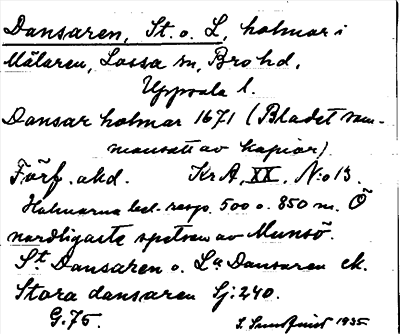 Dansaren, St. o. L., holmar i
Mälaren, Lossa sn, Bro hd,
Uppsala l.
Dansar holmar 1671 (Bladet sam-
mansatt av kopior).
Förf. okd. KrA, XX, N:o 13.
Holmarna bel. resp. 500 o. 850 m. Ö
nordligaste spetsen av Munsö.
St Dansaren o. La Dansaren ek.
Stora dansaren Sj: 240.
G. 75. 1935